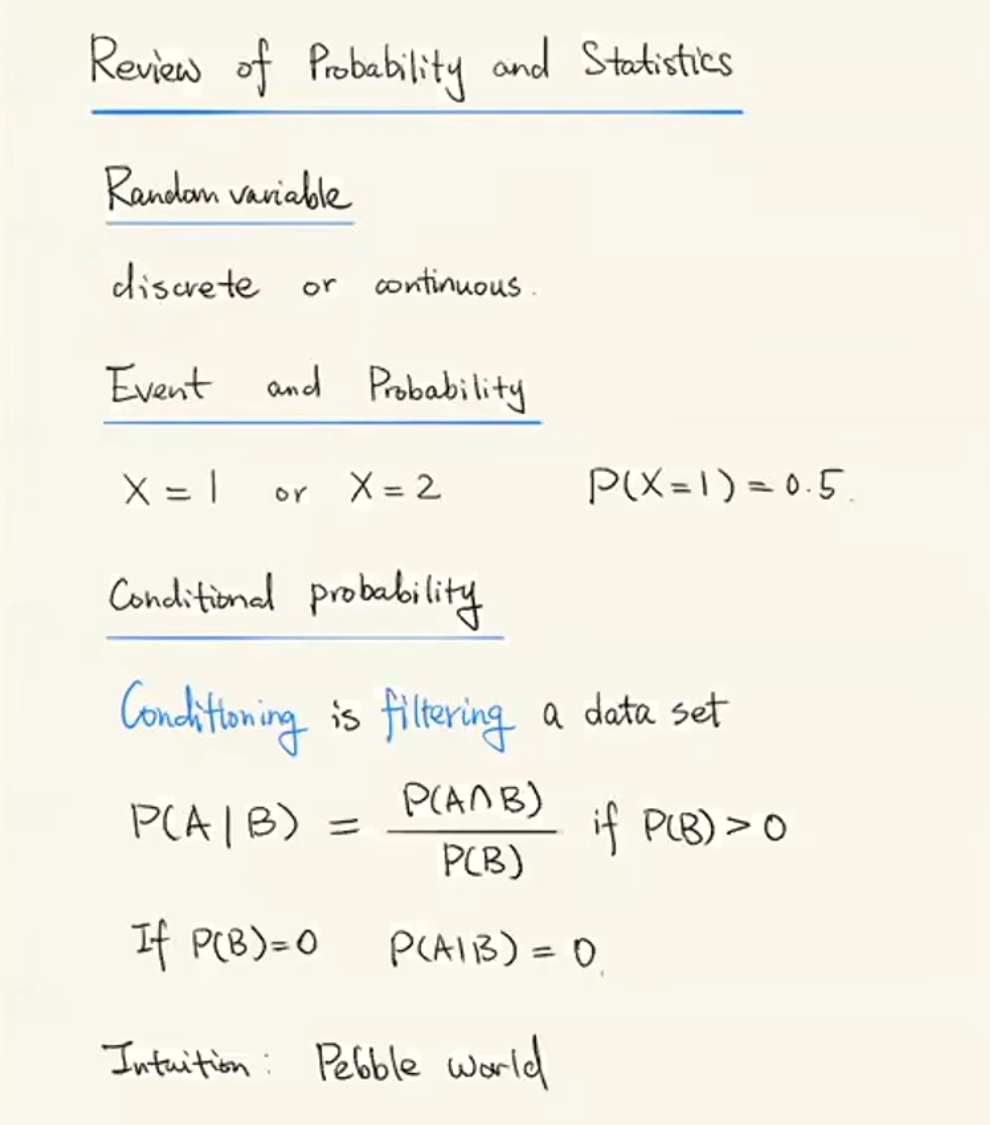 Review of Probability and Statistics
Random variable
discrete or continuous.
Event and Probability
X = 1 or X = 2 P(X=1) = 0.5.
Conditional probability
Conditioning is filtering a data set
P(A|B) = P(A∩B) / P(B) if P(B) > 0
If P(B)=0 P(A|B) = 0.
Intuition: Pebble world